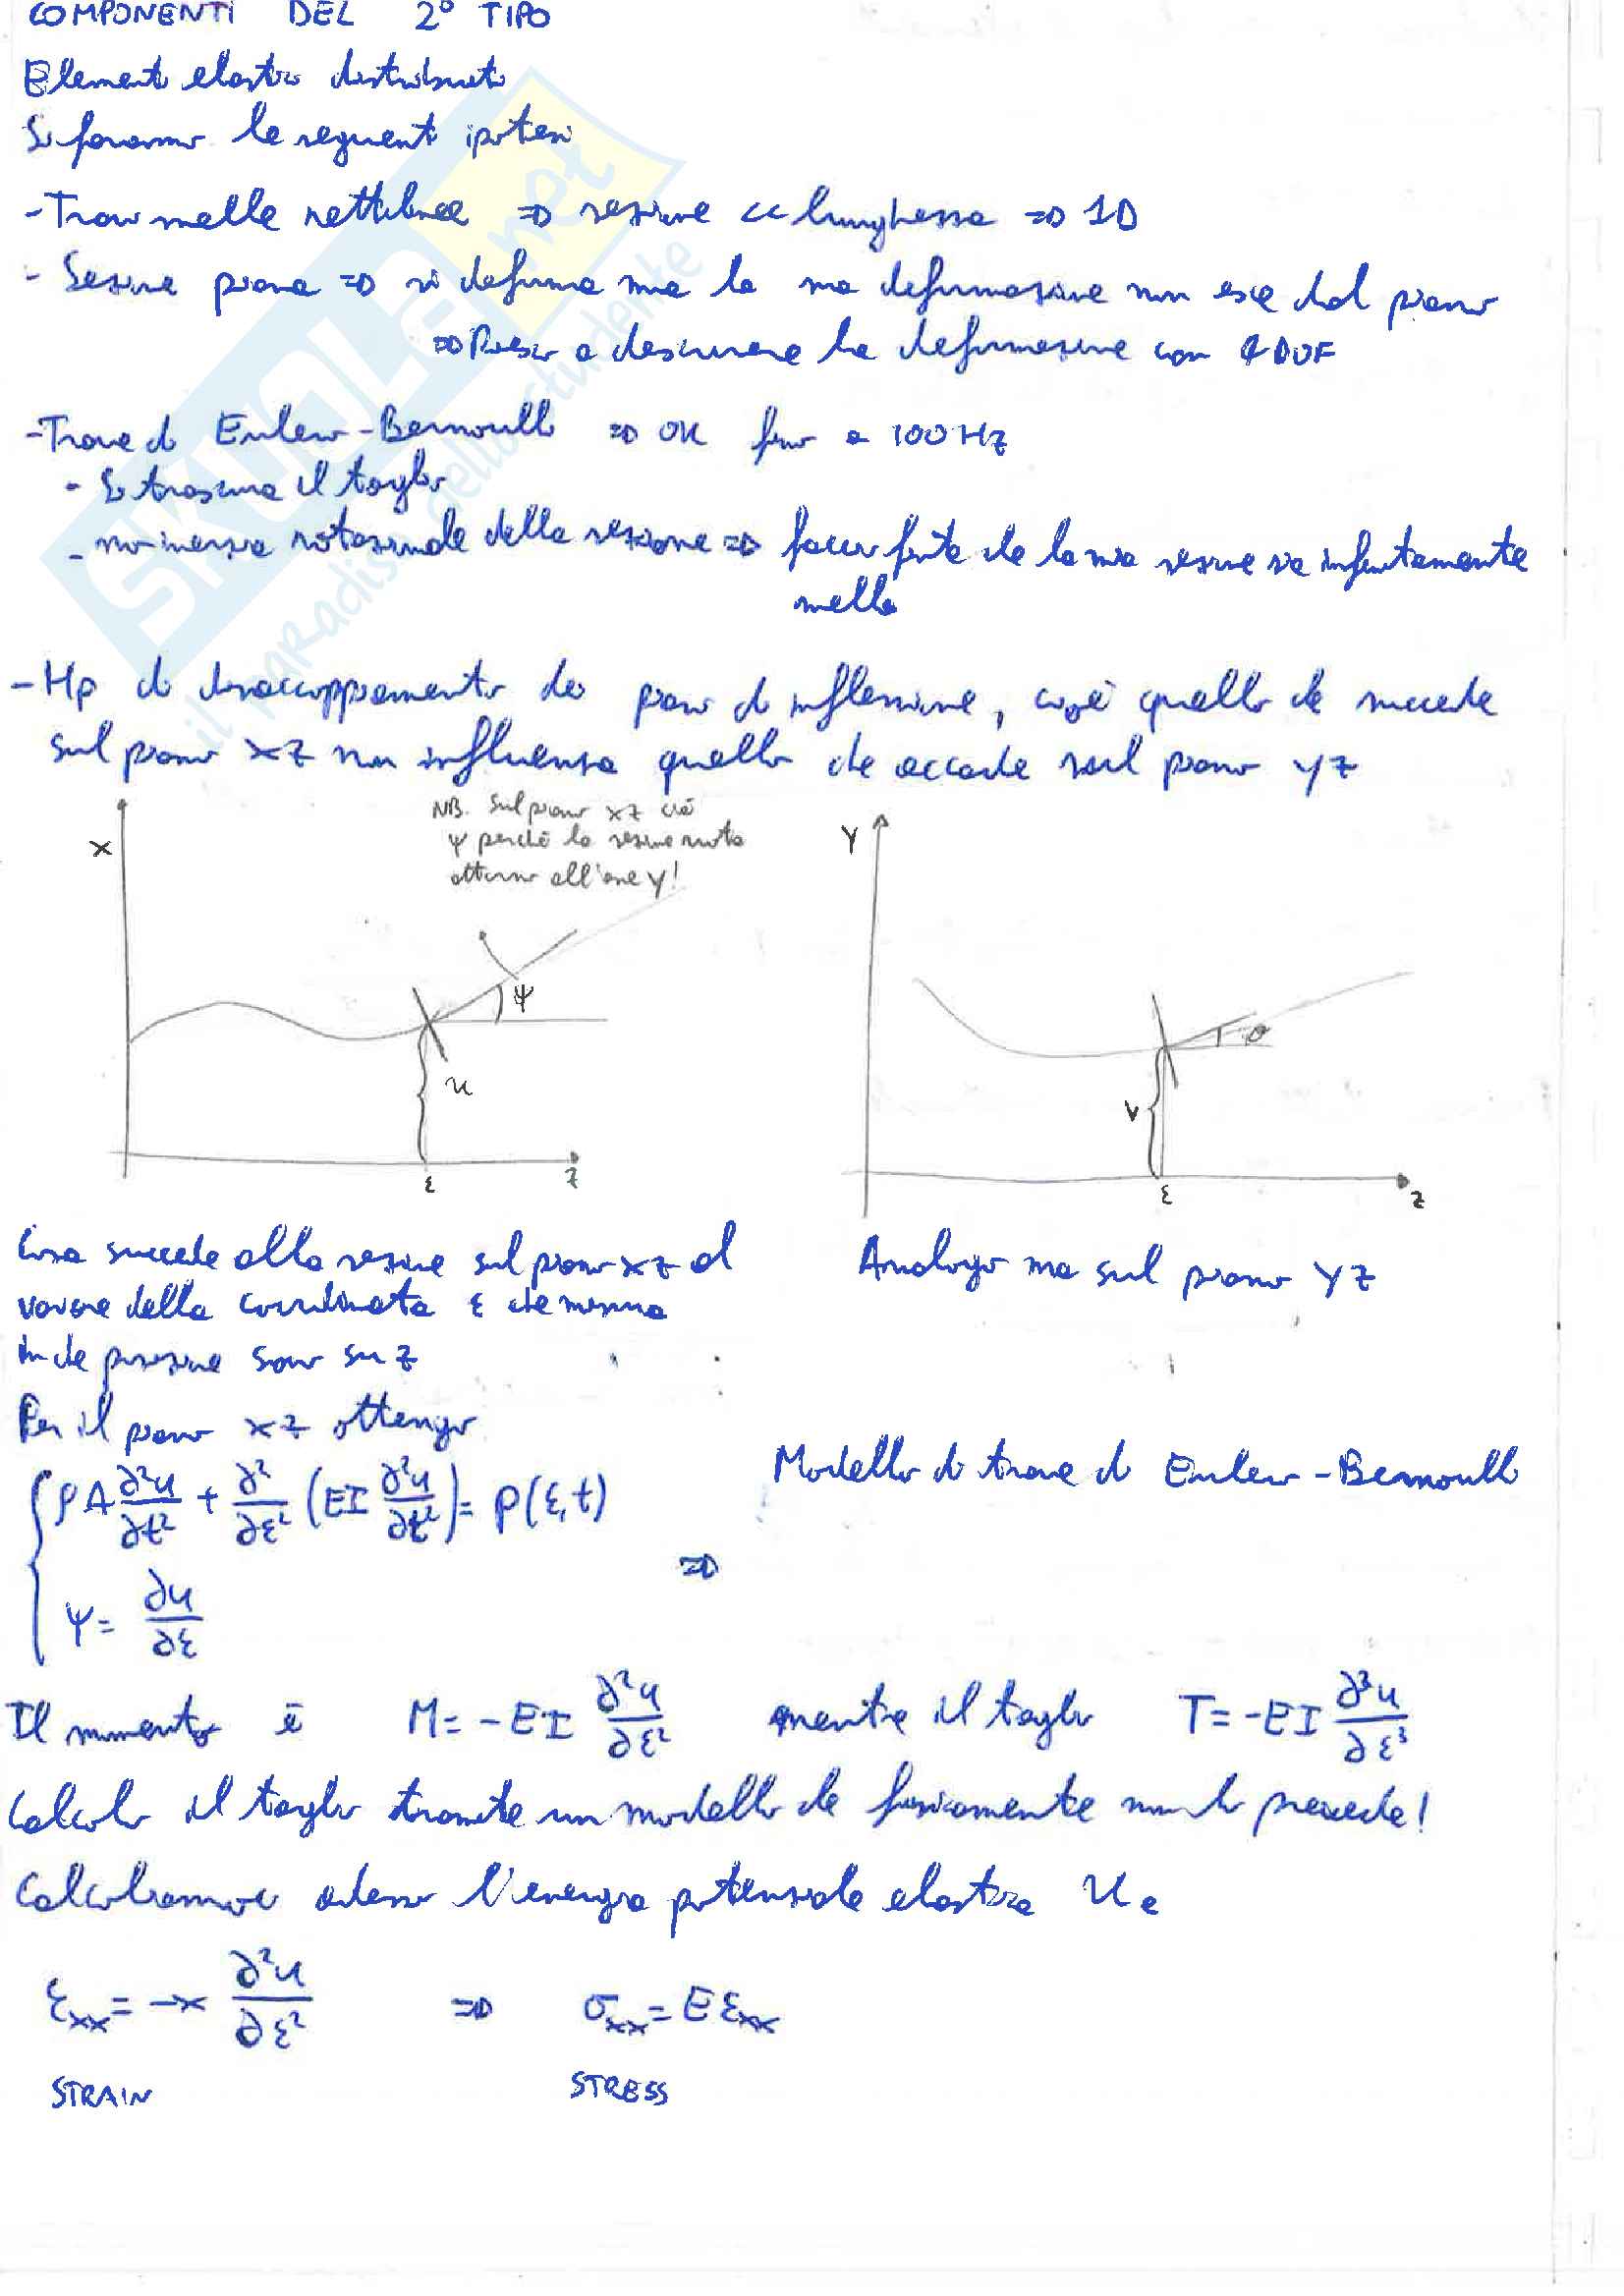 COMPONENTI DEL 2° TIPO
Elementi elastici distribuiti
Si faranno le seguenti ipotesi
- Trave snella rettilinea => sezione << lunghezza => 1D
- Sezione piana => si deforma ma la sua deformazione non esce dal piano
=> Riesco a descrivere la deformazione con 4 DOF
- Trave di Eulero-Bernoulli => OK fino a 100 Hz
- Si trascura il taglio
- no inerzia rotazionale della sezione => faccio finta che la mia sezione sia infinitamente
snella
- Hp di disaccoppiamento dei piani di inflessione, cioè quello che succede
sul piano XZ non influenza quello che accade sul piano YZ
NB. Sul piano XZ c'è
ψ perché la sezione ruota
attorno all'asse Y!
X
ψ
u
ε
z
Y
θ
v
ε
z
Cosa succede alla sezione sul piano XZ al
variare della coordinata ε che misura
in che posizione sono su z
Analogo ma sul piano YZ
Per il piano XZ ottengo
ρA ∂²u/∂t² + ∂²/∂ε² (EI ∂²u/∂t²) = p(ε,t)
ψ = ∂u/∂ε
=> Modello di trave di Eulero-Bernoulli
Il momento è M = -EI ∂²u/∂ε² mentre il taglio T = -EI ∂³u/∂ε³
Calcolo il taglio tramite un modello che fisicamente non lo prevede!
Calcoliamoci adesso l'energia potenziale elastica Ue
εxx = -x ∂²u/∂ε² => σxx = E εxx
STRAIN STRESS
SKUOLA.net
il paradiso dello studente